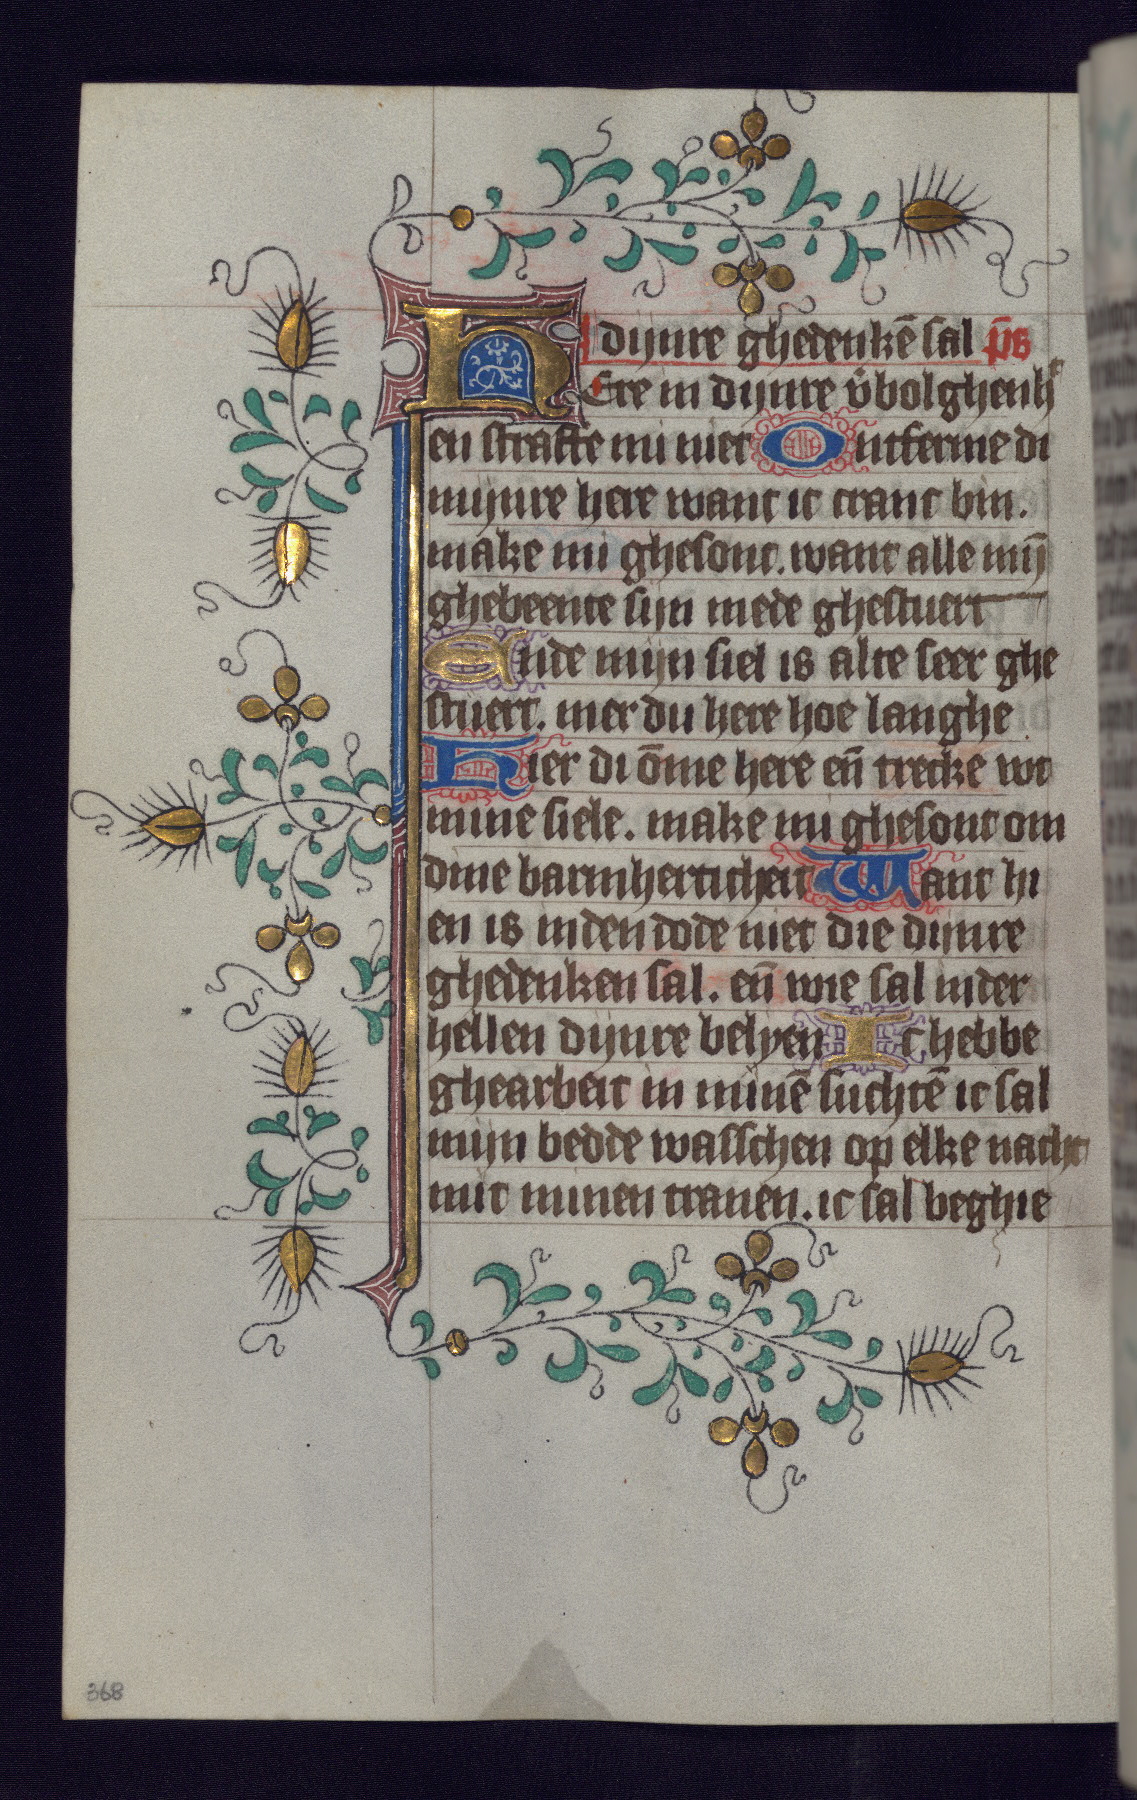 dijnre ghedenkē sal p̄s
HEre in dijnre v̉bolghenh̾
en straffe mi niet Ontferme di
mijnre here want ic cranc bin.
make mi ghesont. want alle mij̄
ghebeente sijn mede ghestuert
Ende mijn siel is alte seer ghe
stuert. mer du here hoe langhe
Kier di ōme here eñ trecke wt
mine siele. make mi ghesont om
dine barmherticheit Want hi
en is inden dode niet die dijnre
ghedenken sal. eñ wie sal inder
hellen dijnre belyen Ic hebbe
ghearbeit in minē suchtē ic sal
mijn bedde wasschen op elke nacht
mit minen tranen. ic sal beghie
368